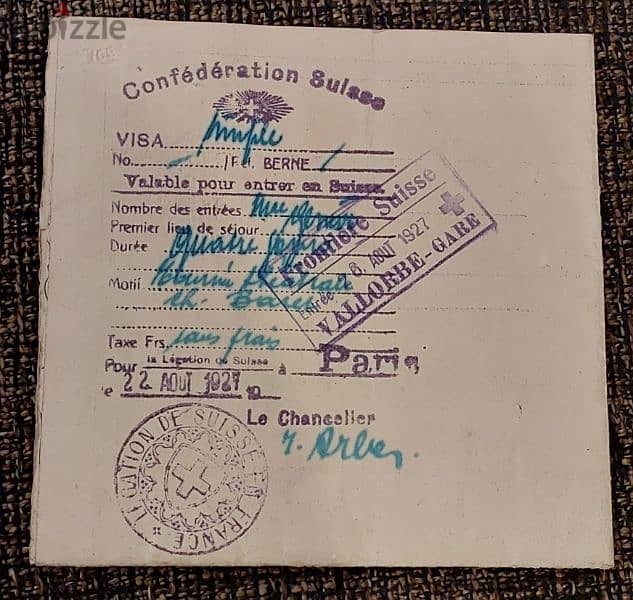 bizzle
Confédération Suisse
VISA simple
No. /P. BERNE
Valable pour entrer en Suisse.
Nombre des entrées Une
Premier lieu de séjour Genève
Durée quatre jours
Motif tournée théâtrale
ch. Baret
Taxe Frs. sans frais
Pour la Légation de Suisse à Paris
le 22 AOUT 1927 19
Le Chancelier
Frontière Suisse
Entrée 26 AOUT 1927
VALLORBE-GARE
LÉGATION DE SUISSE EN FRANCE